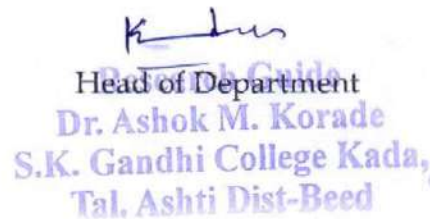 Head of Department
Research Guide
Dr. Ashok M. Korade
S.K. Gandhi College Kada,
Tal. Ashti Dist-Beed